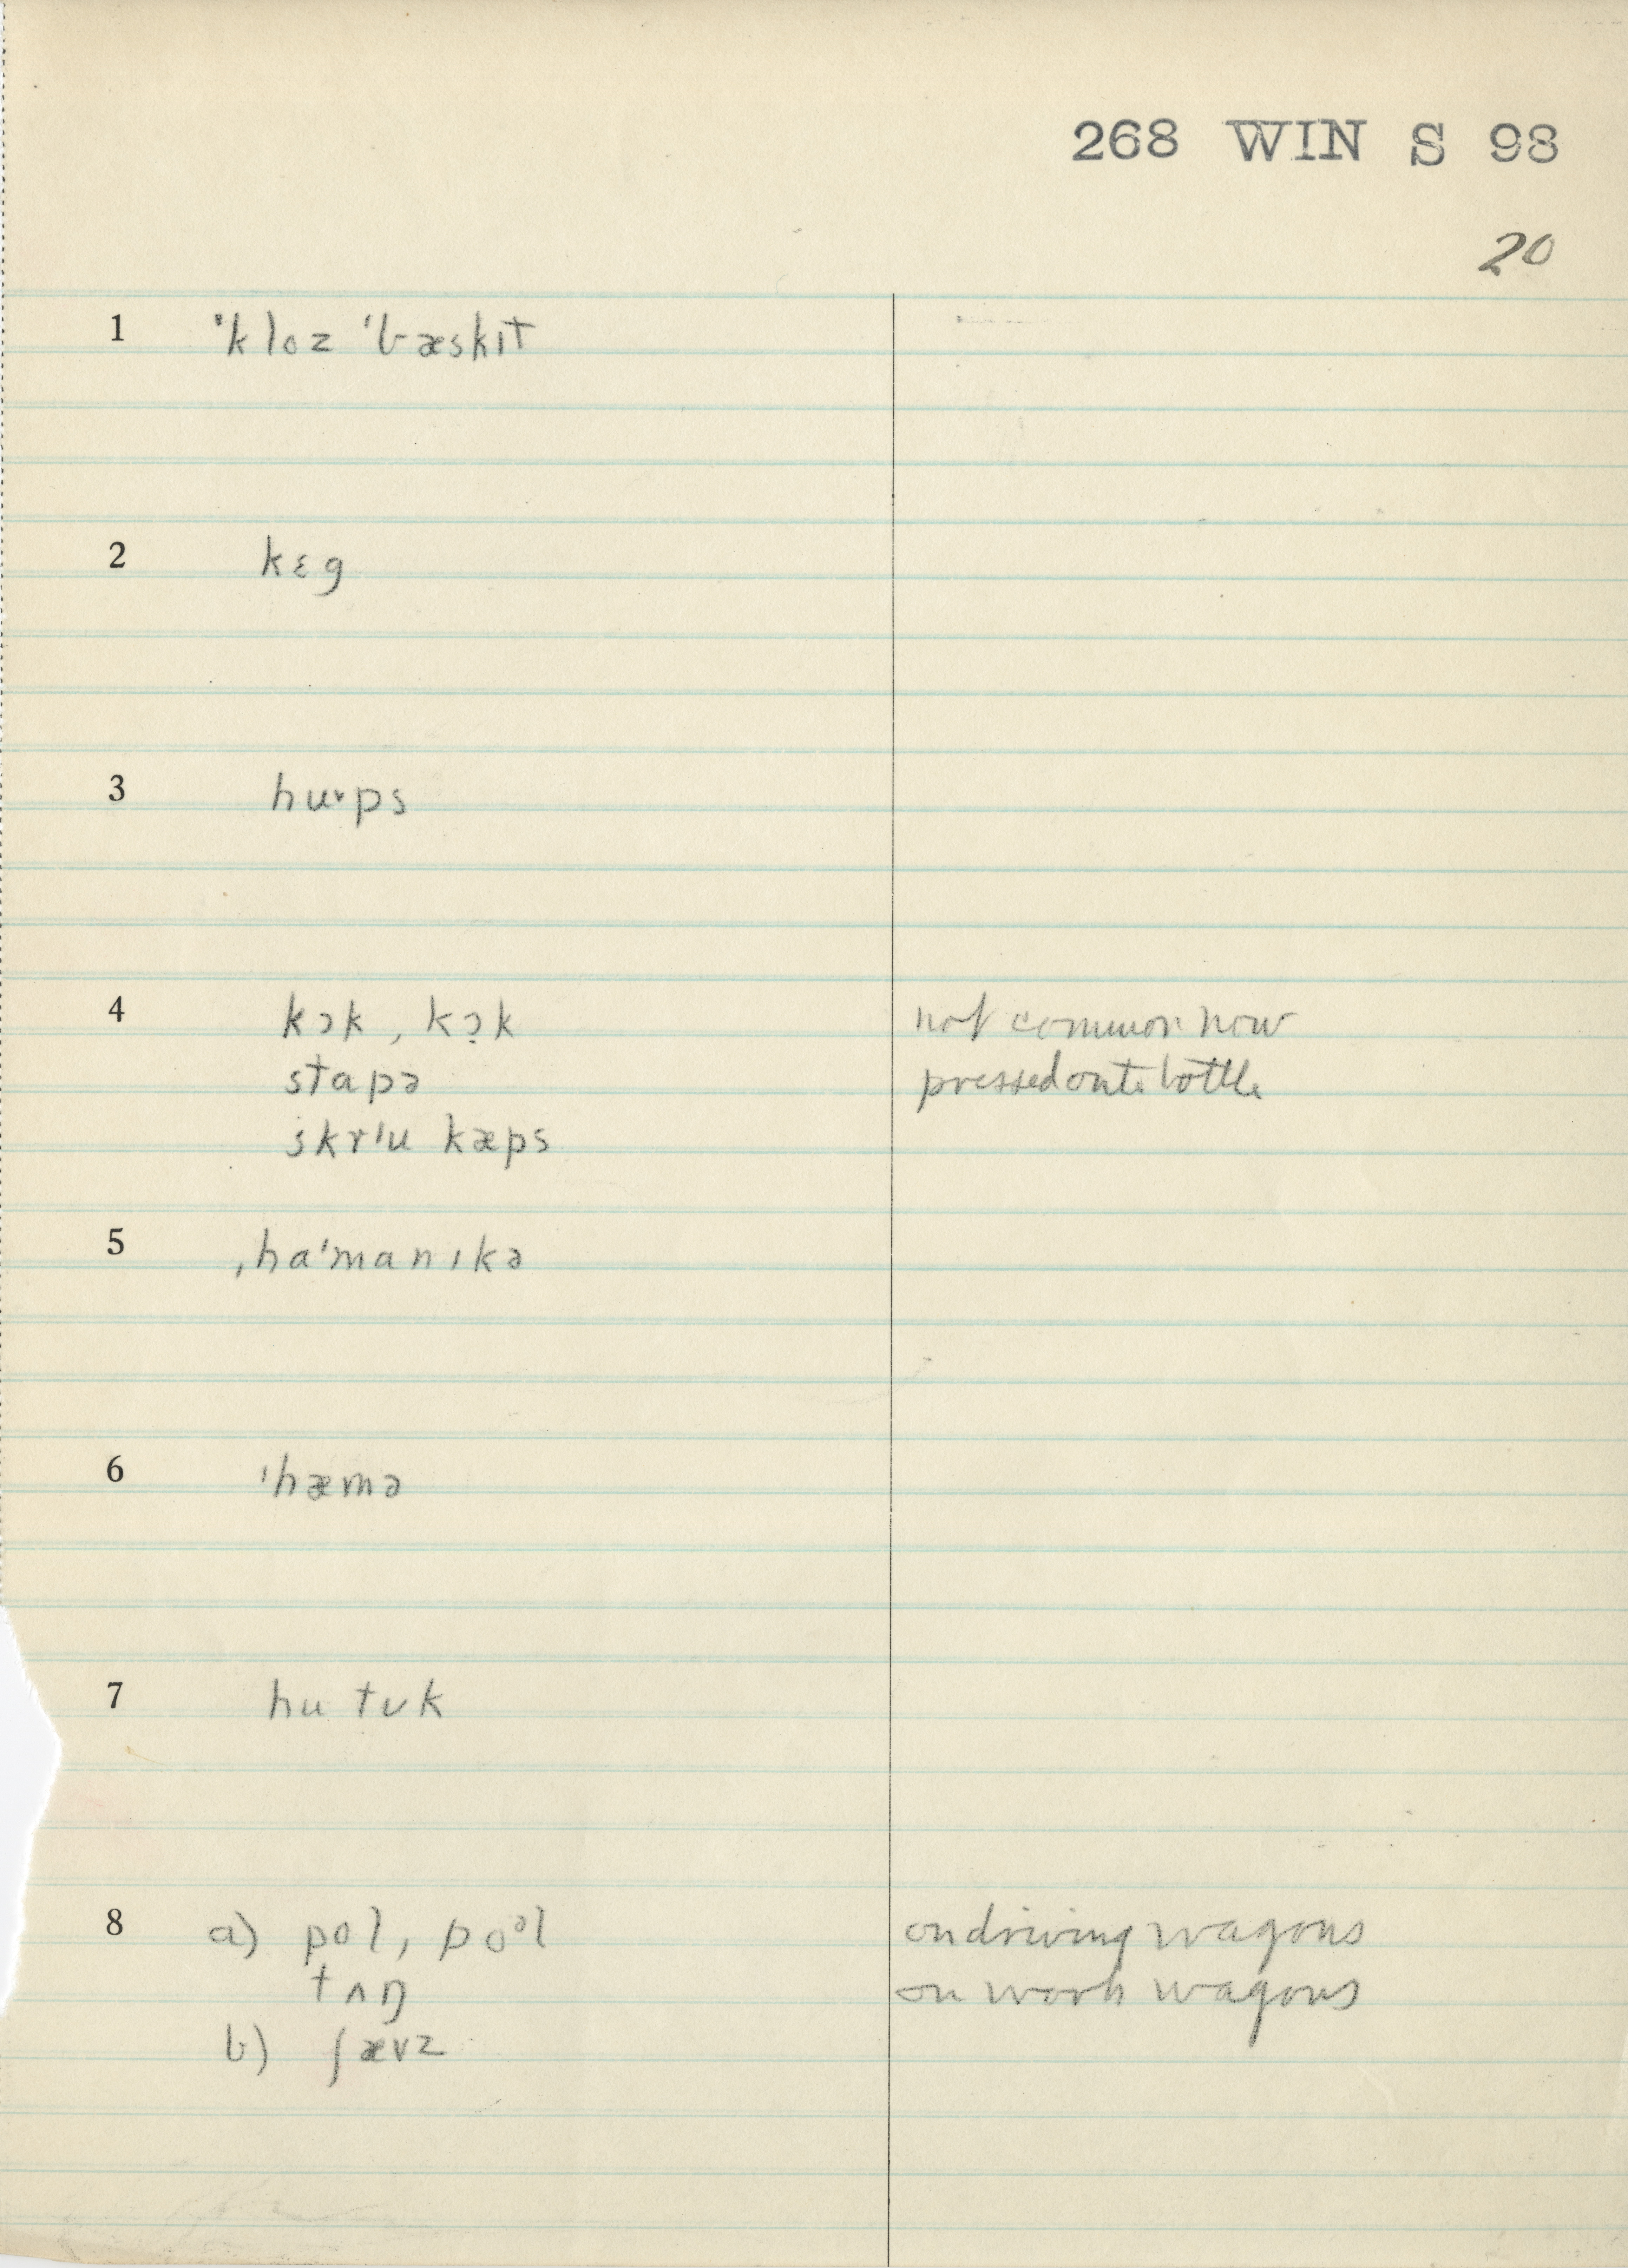 268 WIN S 98
20
1 ˈkloz ˈbæskɪt
2 kɛg
3 hu˅ps
4 kɔk, kɔ̣k not common now
stapə pressed onto bottle
skrˈu kæps
5 ˌhaˈmanɪkə
6 ˈhæmə
7 hu tʊk
8 a) pol, poᵊl on driving wagons
tʌŋ on work wagons
b) ʃævz